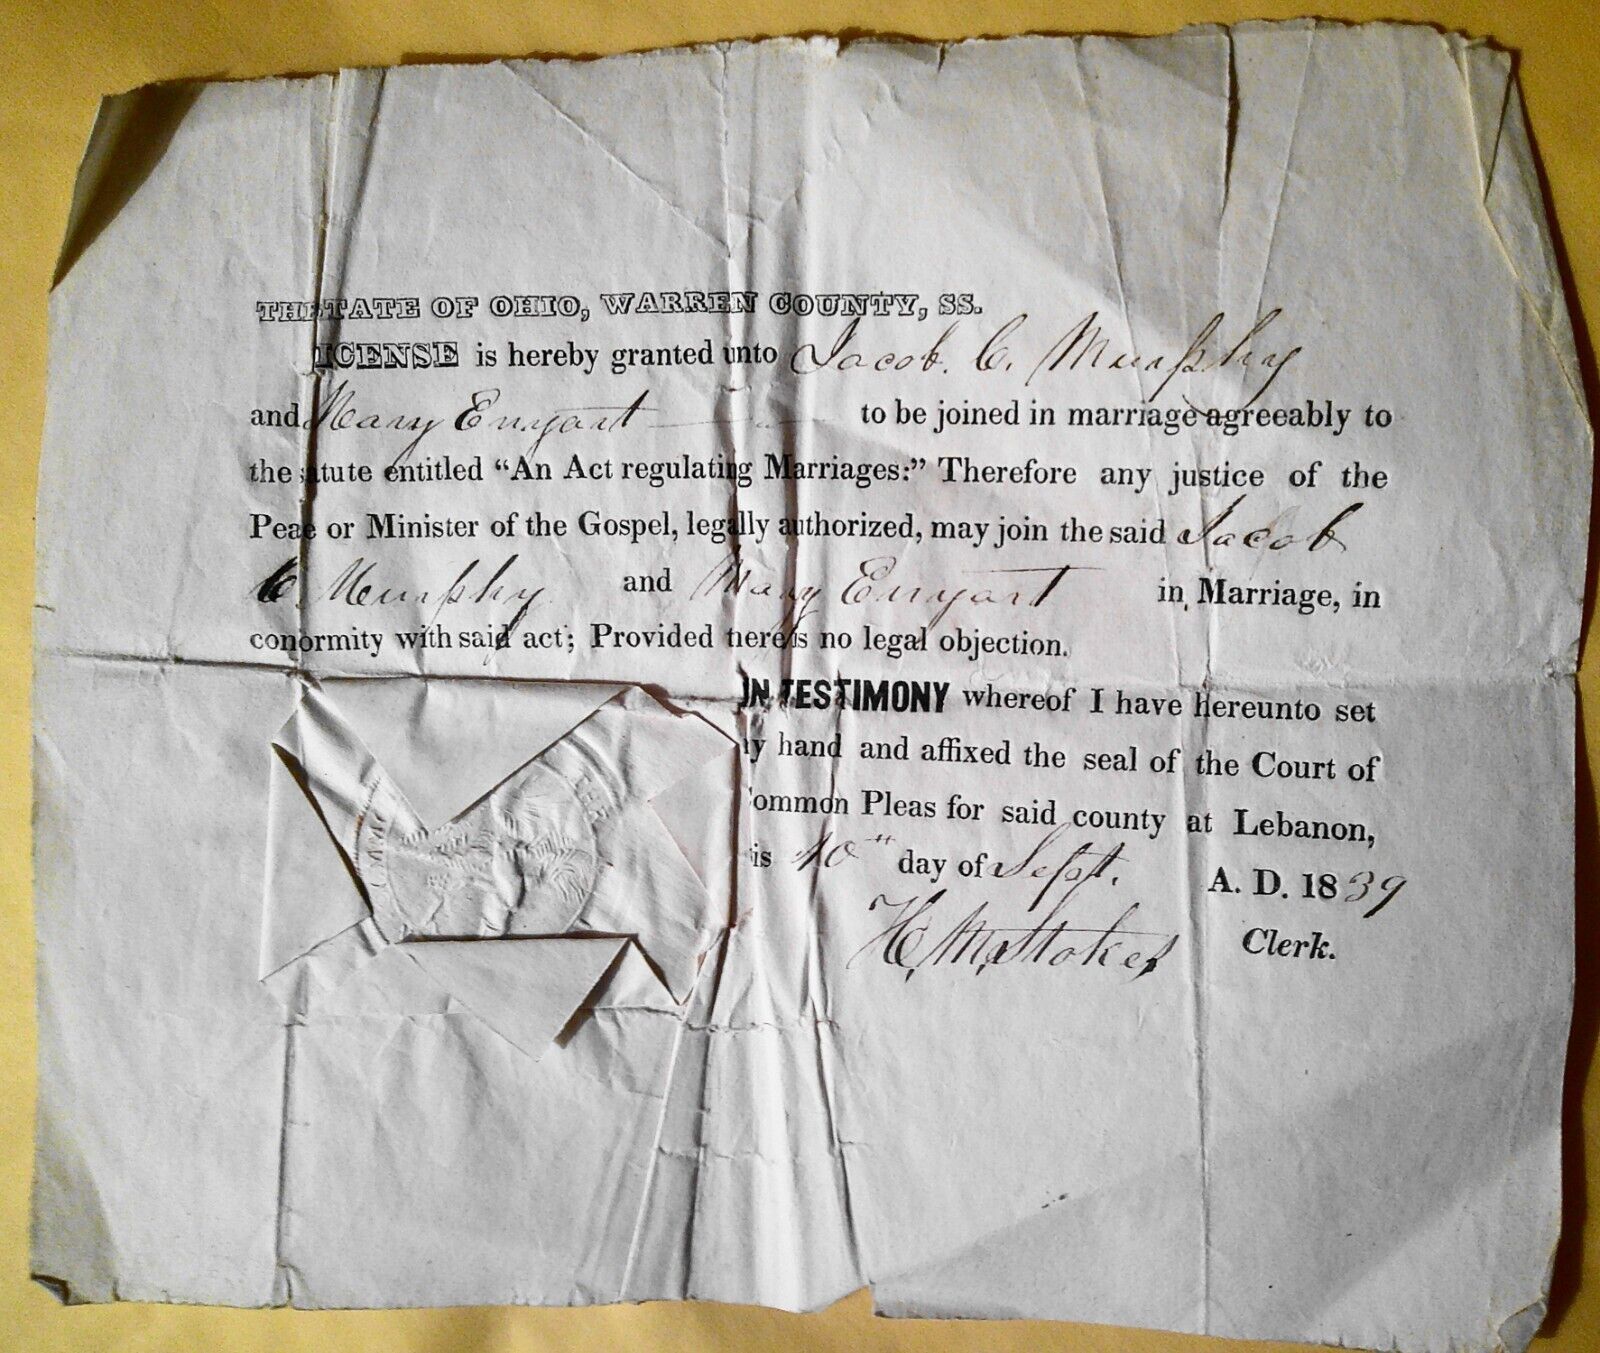 THE TATE OF OHIO, WARREN COUNTY, SS.
ICENSE is hereby granted unto Jacob. C. Murphy
and Mary Enyart to be joined in marriage agreeably to
the atute entitled “An Act regulating Marriages:” Therefore any justice of the
Peae or Minister of the Gospel, legally authorized, may join the said Jacob
C. Murphy and Mary Enyart in Marriage, in
conormity with said act; Provided there is no legal objection.
IN TESTIMONY whereof I have hereunto set
y hand and affixed the seal of the Court of
ommon Pleas for said county at Lebanon,
is 10th day of Sept. A. D. 1839
H. M. Stokes Clerk.